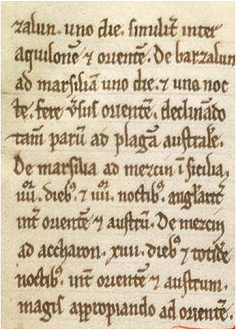 zalun. uno die. similit̃ inter
aquilonē ⁊ orientē. De barzalun
ad marsiliā uno die. ⁊ uno noc
te. fere ũsus orientē. declinādo
tam̃ parū ad plagā australē.
De marsilia ad mezcin ī sicilia,
iiii. dieb⁹ ⁊ iiii. noctib⁹. angl̃arit̃
int̃ orientē ⁊ austrū. De mezcin
ad accharon. xiiii. dieb⁹ ⁊ totidē
noctib⁹. int̃ orientē ⁊ austrum.
magis appropiando ad orientē.